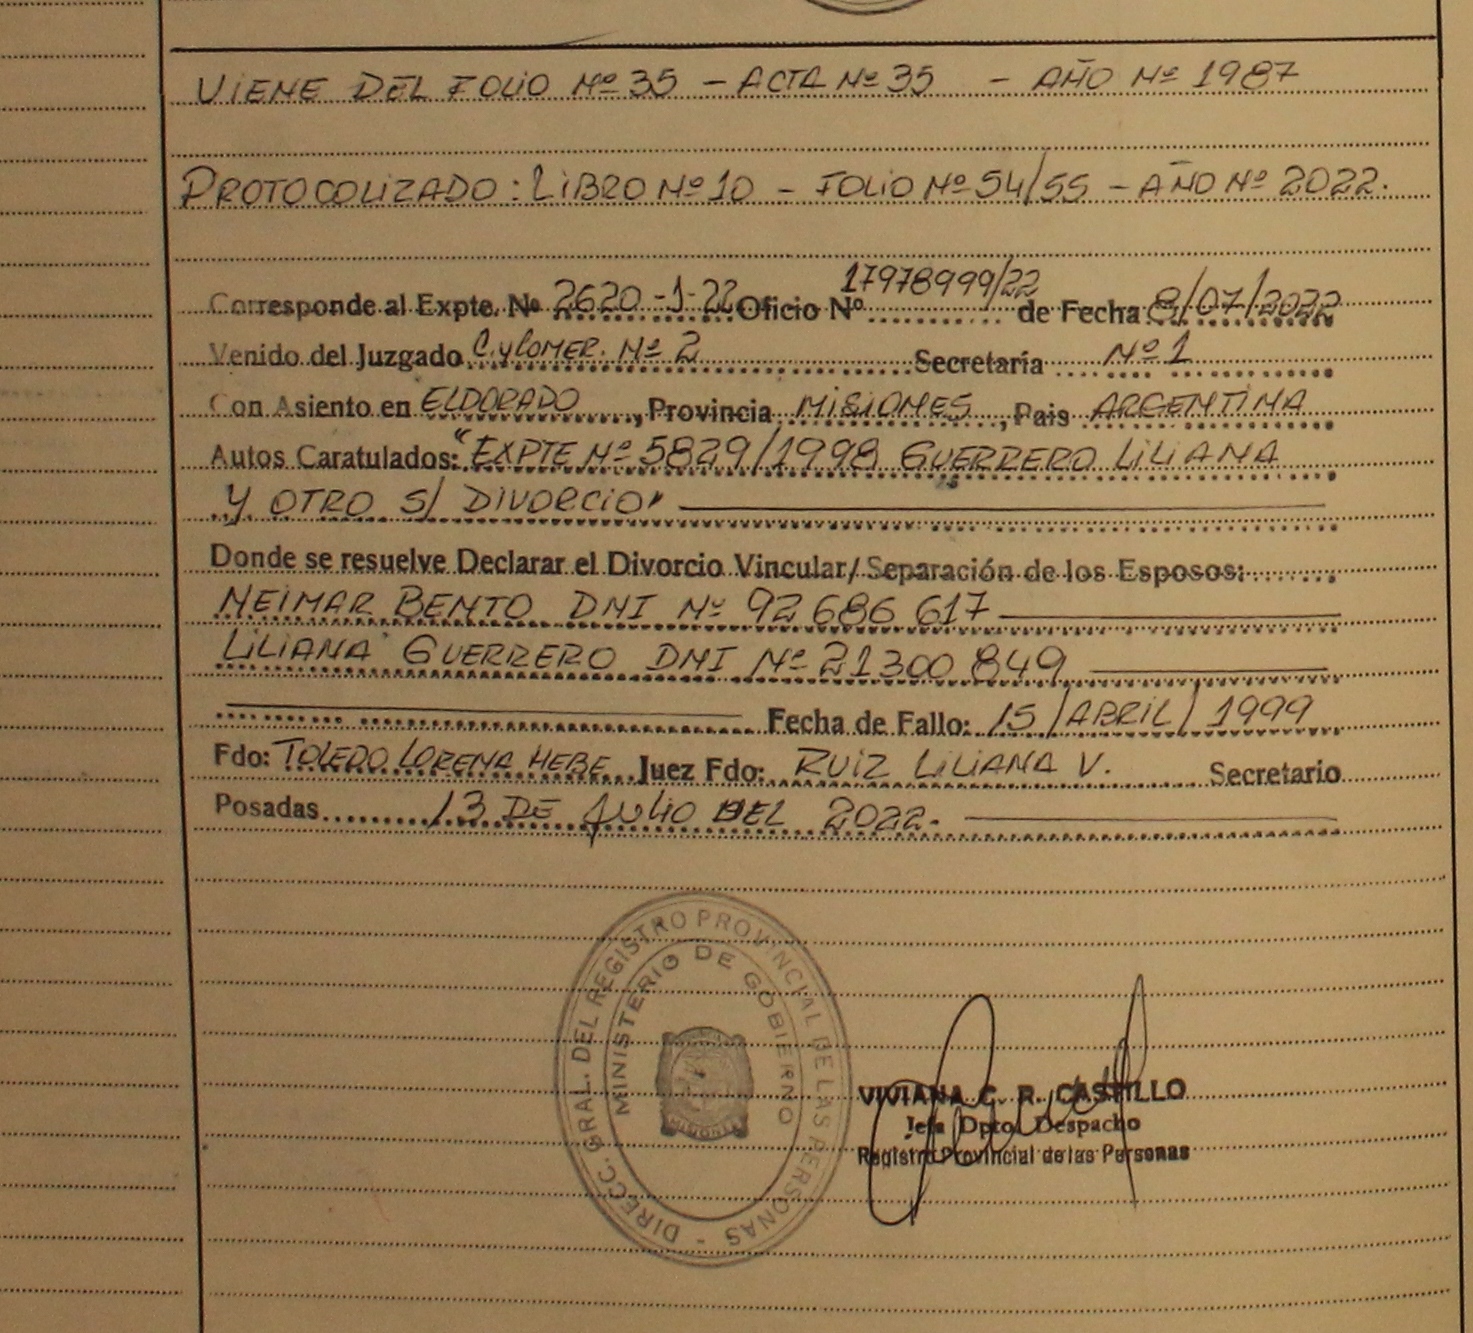 VIENE DEL FOLIO Nº 35 - ACTA Nº 35 - AÑO Nº 1987
PROTOCOLIZADO: LIBRO Nº 10 - FOLIO Nº 54/55 - AÑO Nº 2022.
Corresponde al Expte. Nº 2620-1-22 Oficio Nº 17978999/22 de Fecha 8/07/2022
Venido del Juzgado C. y COMER. Nº 2 Secretaría Nº 1
Con Asiento en ELDORADO, Provincia MISIONES, Pais ARGENTINA
Autos Caratulados: "EXPTE Nº 5829/1998 GUERRERO LILIANA
Y OTRO S/ DIVORCIO"
Donde se resuelve Declarar el Divorcio Vincular/Separación de los Esposos:
NEIMAR BENTO DNI Nº 92 686 617
LILIANA GUERRERO DNI Nº 21300 849
Fecha de Fallo: 15/ABRIL/1999
Fdo: TOLEDO LORENA HEBE Juez Fdo: RUIZ LILIANA V. Secretario
Posadas 13 DE JULIO DEL 2022.
DIRECC. GRAL. DEL REGISTRO PROVINCIAL DE LAS PERSONAS -
MINISTERIO DE GOBIERNO
VIVIANA C. R. CASTILLO
Jefa Dpto. Despacho
Registro Provincial de las Personas